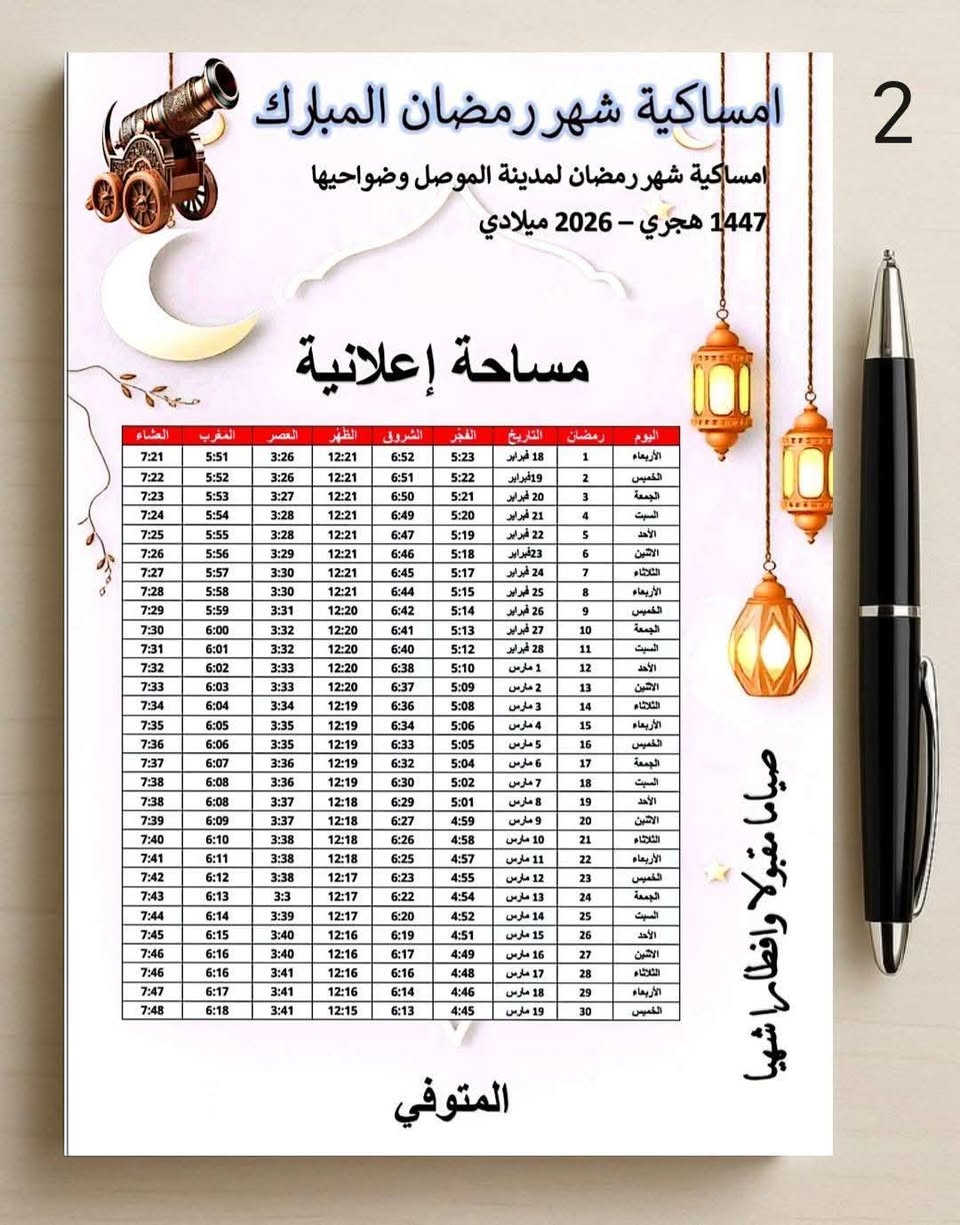 2
امساكية شهر رمضان المبارك
امساكية شهر رمضان لمدينة الموصل وضواحيها
1447 هجري – 2026 ميلادي
مساحة إعلانية
اليوم رمضان التاريخ الفَجْر الشروق الظُهْر العصر المَغرب العشاء
الأربعاء 1 18 فبراير 5:23 6:52 12:21 3:26 5:51 7:21
الخميس 2 19فبراير 5:22 6:51 12:21 3:26 5:52 7:22
الجمعة 3 20 فبراير 5:21 6:50 12:21 3:27 5:53 7:23
السبت 4 21 فبراير 5:20 6:49 12:21 3:28 5:54 7:24
الأحد 5 22 فبراير 5:19 6:47 12:21 3:28 5:55 7:25
الاثنين 6 23فبراير 5:18 6:46 12:21 3:29 5:56 7:26
الثلاثاء 7 24 فبراير 5:17 6:45 12:21 3:30 5:57 7:27
الأربعاء 8 25 فبراير 5:15 6:44 12:21 3:30 5:58 7:28
الخميس 9 26 فبراير 5:14 6:42 12:20 3:31 5:59 7:29
الجمعة 10 27 فبراير 5:13 6:41 12:20 3:32 6:00 7:30
السبت 11 28 فبراير 5:12 6:40 12:20 3:32 6:01 7:31
الأحد 12 1 مارس 5:10 6:38 12:20 3:33 6:02 7:32
الاثنين 13 2 مارس 5:09 6:37 12:20 3:33 6:03 7:33
الثلاثاء 14 3 مارس 5:08 6:36 12:19 3:34 6:04 7:34
الأربعاء 15 4 مارس 5:06 6:34 12:19 3:35 6:05 7:35
الخميس 16 5 مارس 5:05 6:33 12:19 3:35 6:06 7:36
الجمعة 17 6 مارس 5:04 6:32 12:19 3:36 6:07 7:37
السبت 18 7 مارس 5:02 6:30 12:19 3:36 6:08 7:38
الأحد 19 8 مارس 5:01 6:29 12:18 3:37 6:08 7:38
الاثنين 20 9 مارس 4:59 6:27 12:18 3:37 6:09 7:39
الثلاثاء 21 10 مارس 4:58 6:26 12:18 3:38 6:10 7:40
الأربعاء 22 11 مارس 4:57 6:25 12:18 3:38 6:11 7:41
الخميس 23 12 مارس 4:55 6:23 12:17 3:38 6:12 7:42
الجمعة 24 13 مارس 4:54 6:22 12:17 3:3 6:13 7:43
السبت 25 14 مارس 4:52 6:20 12:17 3:39 6:14 7:44
الأحد 26 15 مارس 4:51 6:19 12:16 3:40 6:15 7:45
الاثنين 27 16 مارس 4:49 6:17 12:16 3:40 6:16 7:46
الثلاثاء 28 17 مارس 4:48 6:16 12:16 3:41 6:16 7:46
الأربعاء 29 18 مارس 4:46 6:14 12:16 3:41 6:17 7:47
الخميس 30 19 مارس 4:45 6:13 12:15 3:41 6:18 7:48
صياما مقبولا وافطارا شهيا
المتوفي